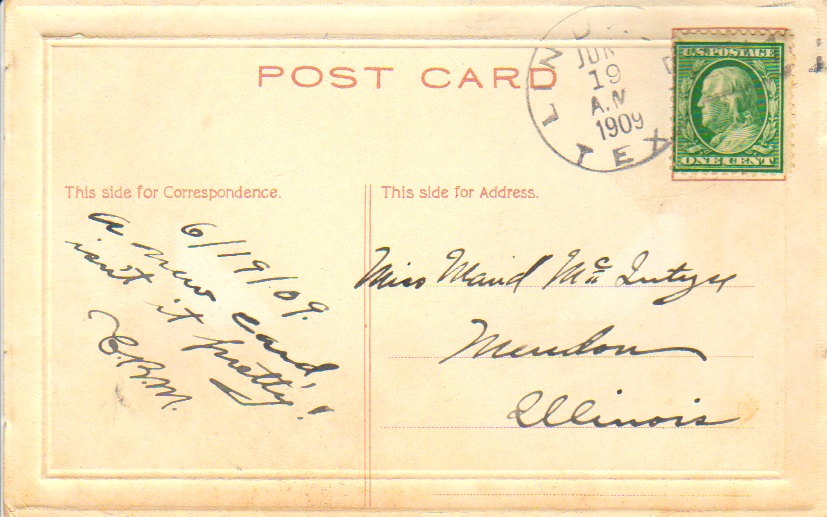 POST CARD
JUN
19
A.M
1909
TEX
U.S. POSTAGE
ONE CENT
This side for Correspondence.
This side for Address.
6/19/09.
A new card,
isn't it pretty!
C.B.M.
Miss Maud
Mendon
Illinois